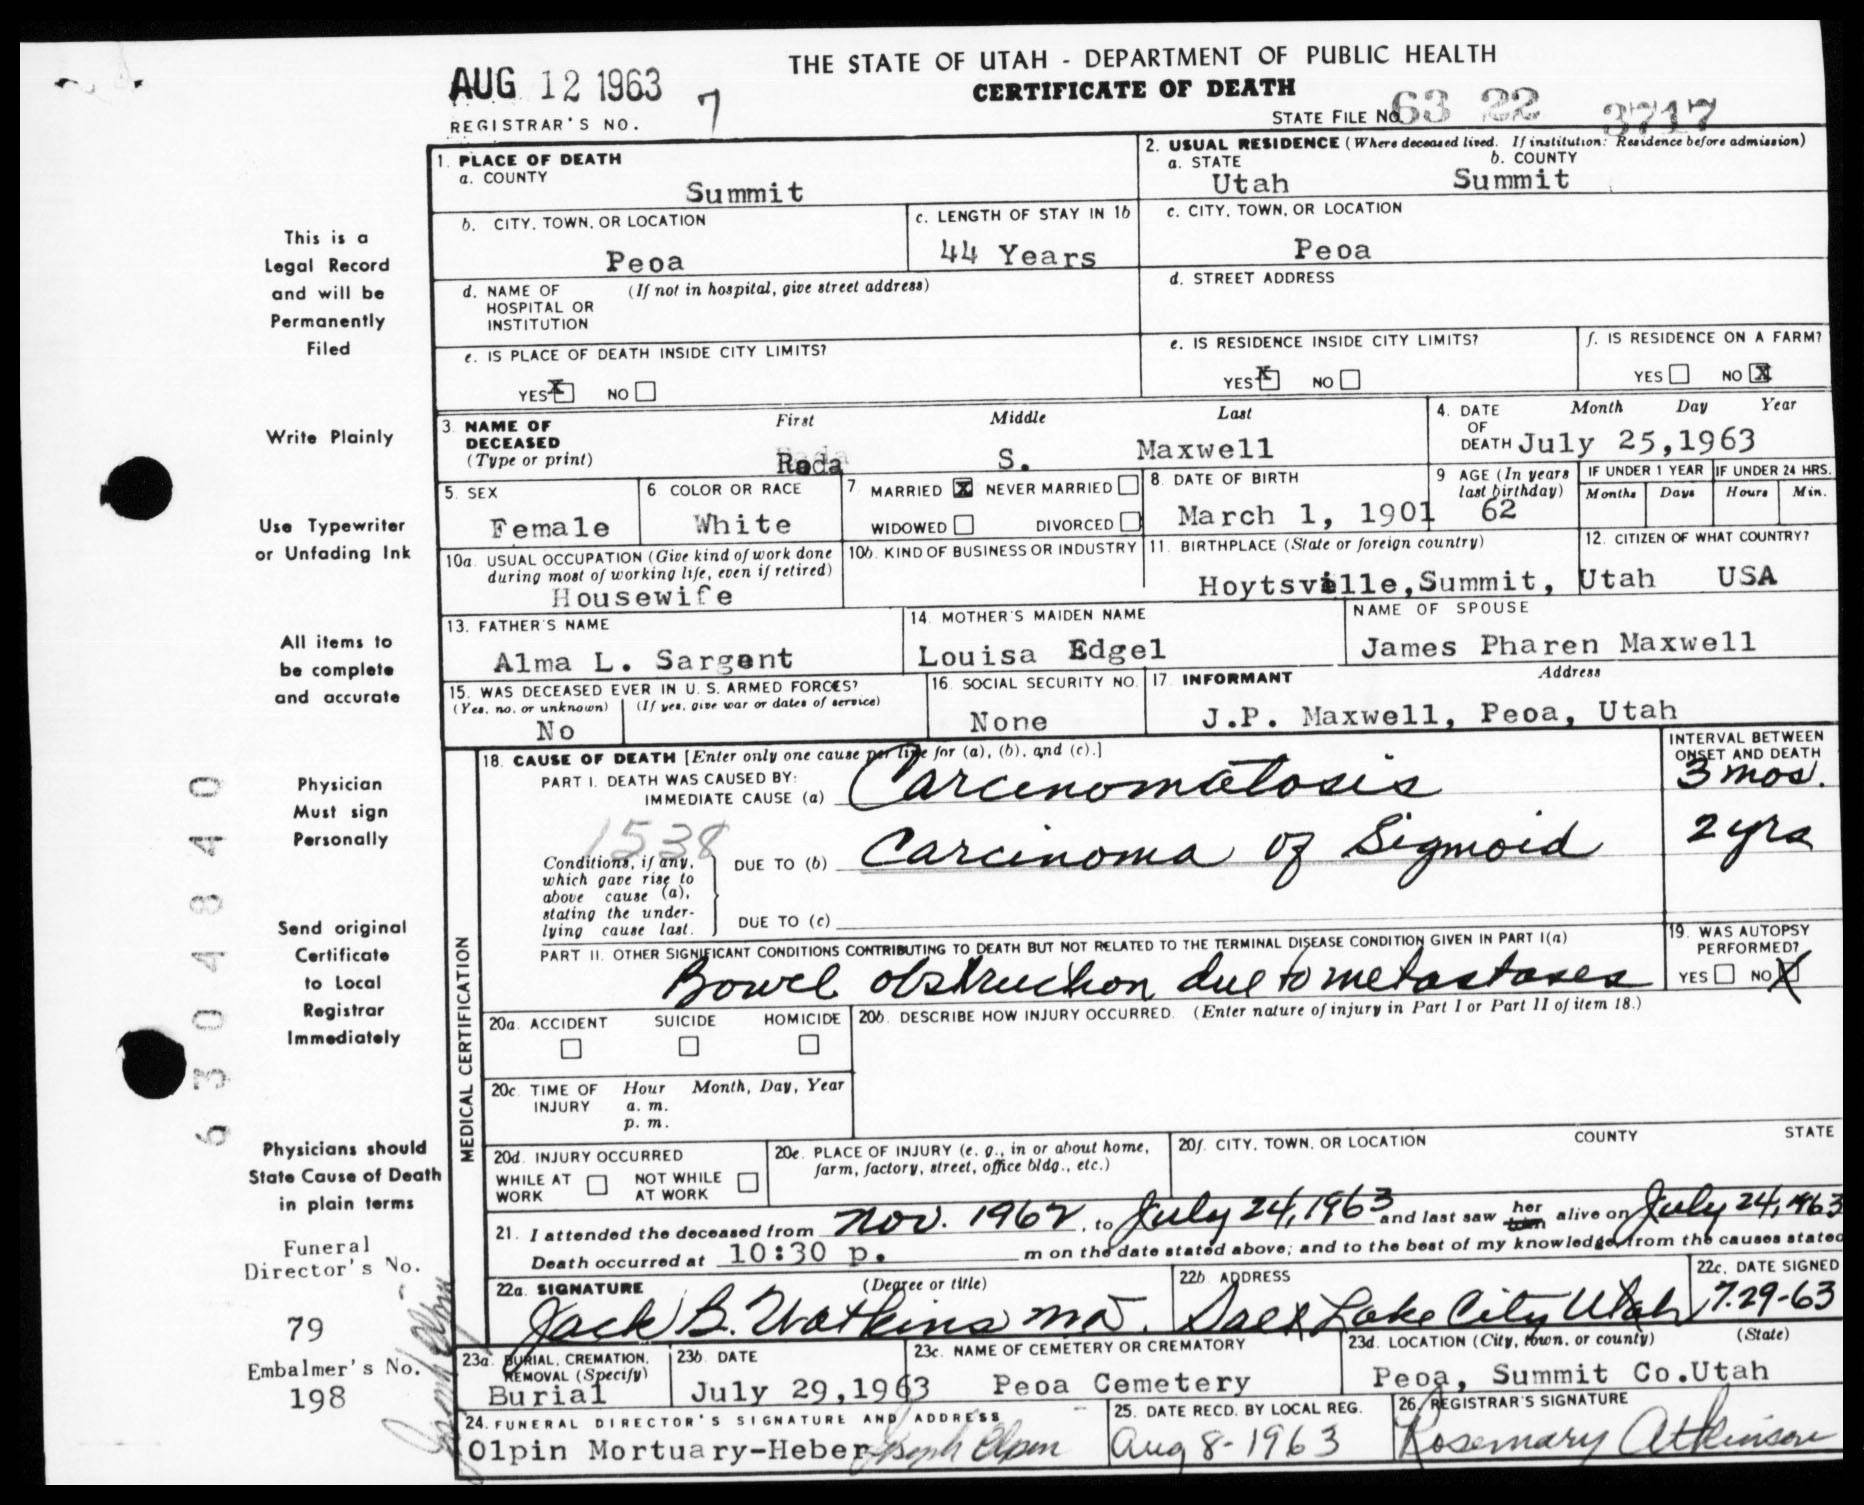 THE STATE OF UTAH - DEPARTMENT OF PUBLIC HEALTH
AUG 12 1963
CERTIFICATE OF DEATH
REGISTRAR'S NO. 7
STATE FILE NO. 63 22 3717
1. PLACE OF DEATH
a. COUNTY
Summit
2. USUAL RESIDENCE (Where deceased lived. If institution: Residence before admission)
a. STATE b. COUNTY
Utah Summit
b. CITY, TOWN, OR LOCATION
Peoa
c. LENGTH OF STAY IN 1b
44 Years
c. CITY, TOWN, OR LOCATION
Peoa
d. NAME OF (If not in hospital, give street address)
HOSPITAL OR
INSTITUTION
d. STREET ADDRESS
e. IS PLACE OF DEATH INSIDE CITY LIMITS?
YES X NO
e. IS RESIDENCE INSIDE CITY LIMITS?
YES X NO
f. IS RESIDENCE ON A FARM?
YES NO X
3. NAME OF DECEASED
(Type or print)
First Middle Last
Roda S. Maxwell
4. DATE OF DEATH
Month Day Year
July 25,1963
5. SEX
Female
6. COLOR OR RACE
White
7. MARRIED X NEVER MARRIED
WIDOWED DIVORCED
8. DATE OF BIRTH
March 1, 1901
9 AGE (In years
last birthday)
62
IF UNDER 1 YEAR IF UNDER 24 HRS.
Months Days Hours Min.
10a. USUAL OCCUPATION (Give kind of work done
during most of working life, even if retired)
Housewife
10b. KIND OF BUSINESS OR INDUSTRY
11. BIRTHPLACE (State or foreign country)
Hoytsville,Summit, Utah
12. CITIZEN OF WHAT COUNTRY?
USA
13. FATHER'S NAME
Alma L. Sargent
14. MOTHER'S MAIDEN NAME
Louisa Edgel
NAME OF SPOUSE
James Pharen Maxwell
15. WAS DECEASED EVER IN U. S. ARMED FORCES?
(Yes, no, or unknown) (If yes, give war or dates of service)
No
16. SOCIAL SECURITY NO.
None
17. INFORMANT Address
J.P. Maxwell, Peoa, Utah
MEDICAL CERTIFICATION
18. CAUSE OF DEATH [Enter only one cause per line for (a), (b), and (c).]
INTERVAL BETWEEN
ONSET AND DEATH
PART I. DEATH WAS CAUSED BY:
IMMEDIATE CAUSE (a) Carcinomatosis 3 mos.
1538
Conditions, if any,
which gave rise to
above cause (a),
stating the under-
lying cause last.
DUE TO (b) Carcinoma of Sigmoid 2 yrs
DUE TO (c)
PART II. OTHER SIGNIFICANT CONDITIONS CONTRIBUTING TO DEATH BUT NOT RELATED TO THE TERMINAL DISEASE CONDITION GIVEN IN PART I(a)
Bowel obstruction due to metastases
19. WAS AUTOPSY
PERFORMED?
YES NO X
20a. ACCIDENT SUICIDE HOMICIDE
20b. DESCRIBE HOW INJURY OCCURRED. (Enter nature of injury in Part I or Part II of item 18.)
20c. TIME OF INJURY
Hour Month, Day, Year
a. m.
p. m.
20d. INJURY OCCURRED
WHILE AT WORK NOT WHILE AT WORK
20e. PLACE OF INJURY (e. g., in or about home,
farm, factory, street, office bldg., etc.)
20f. CITY, TOWN, OR LOCATION COUNTY STATE
21. I attended the deceased from Nov. 1962, to July 24, 1963 and last saw her him alive on July 24, 1963
Death occurred at 10:30 p. m on the date stated above; and to the best of my knowledge, from the causes stated
22a. SIGNATURE (Degree or title)
Jack B. Watkins MD.
22b. ADDRESS
Salt Lake City Utah
22c. DATE SIGNED
7.29-63
23a. BURIAL, CREMATION,
REMOVAL (Specify)
Burial
23b. DATE
July 29,1963
23c. NAME OF CEMETERY OR CREMATORY
Peoa Cemetery
23d. LOCATION (City, town, or county) (State)
Peoa, Summit Co.Utah
24. FUNERAL DIRECTOR'S SIGNATURE AND ADDRESS
Olpin Mortuary-Heber Joseph Olpin
25. DATE RECD. BY LOCAL REG.
Aug 8-1963
26. REGISTRAR'S SIGNATURE
Rosemary Atkinson
This is a
Legal Record
and will be
Permanently
Filed
Write Plainly
Use Typewriter
or Unfading Ink
All items to
be complete
and accurate
Physician
Must sign
Personally
Send original
Certificate
to Local
Registrar
Immediately
Physicians should
State Cause of Death
in plain terms
Funeral
Director's No.
79
Embalmer's No.
198
Joseph Olpin
6304840